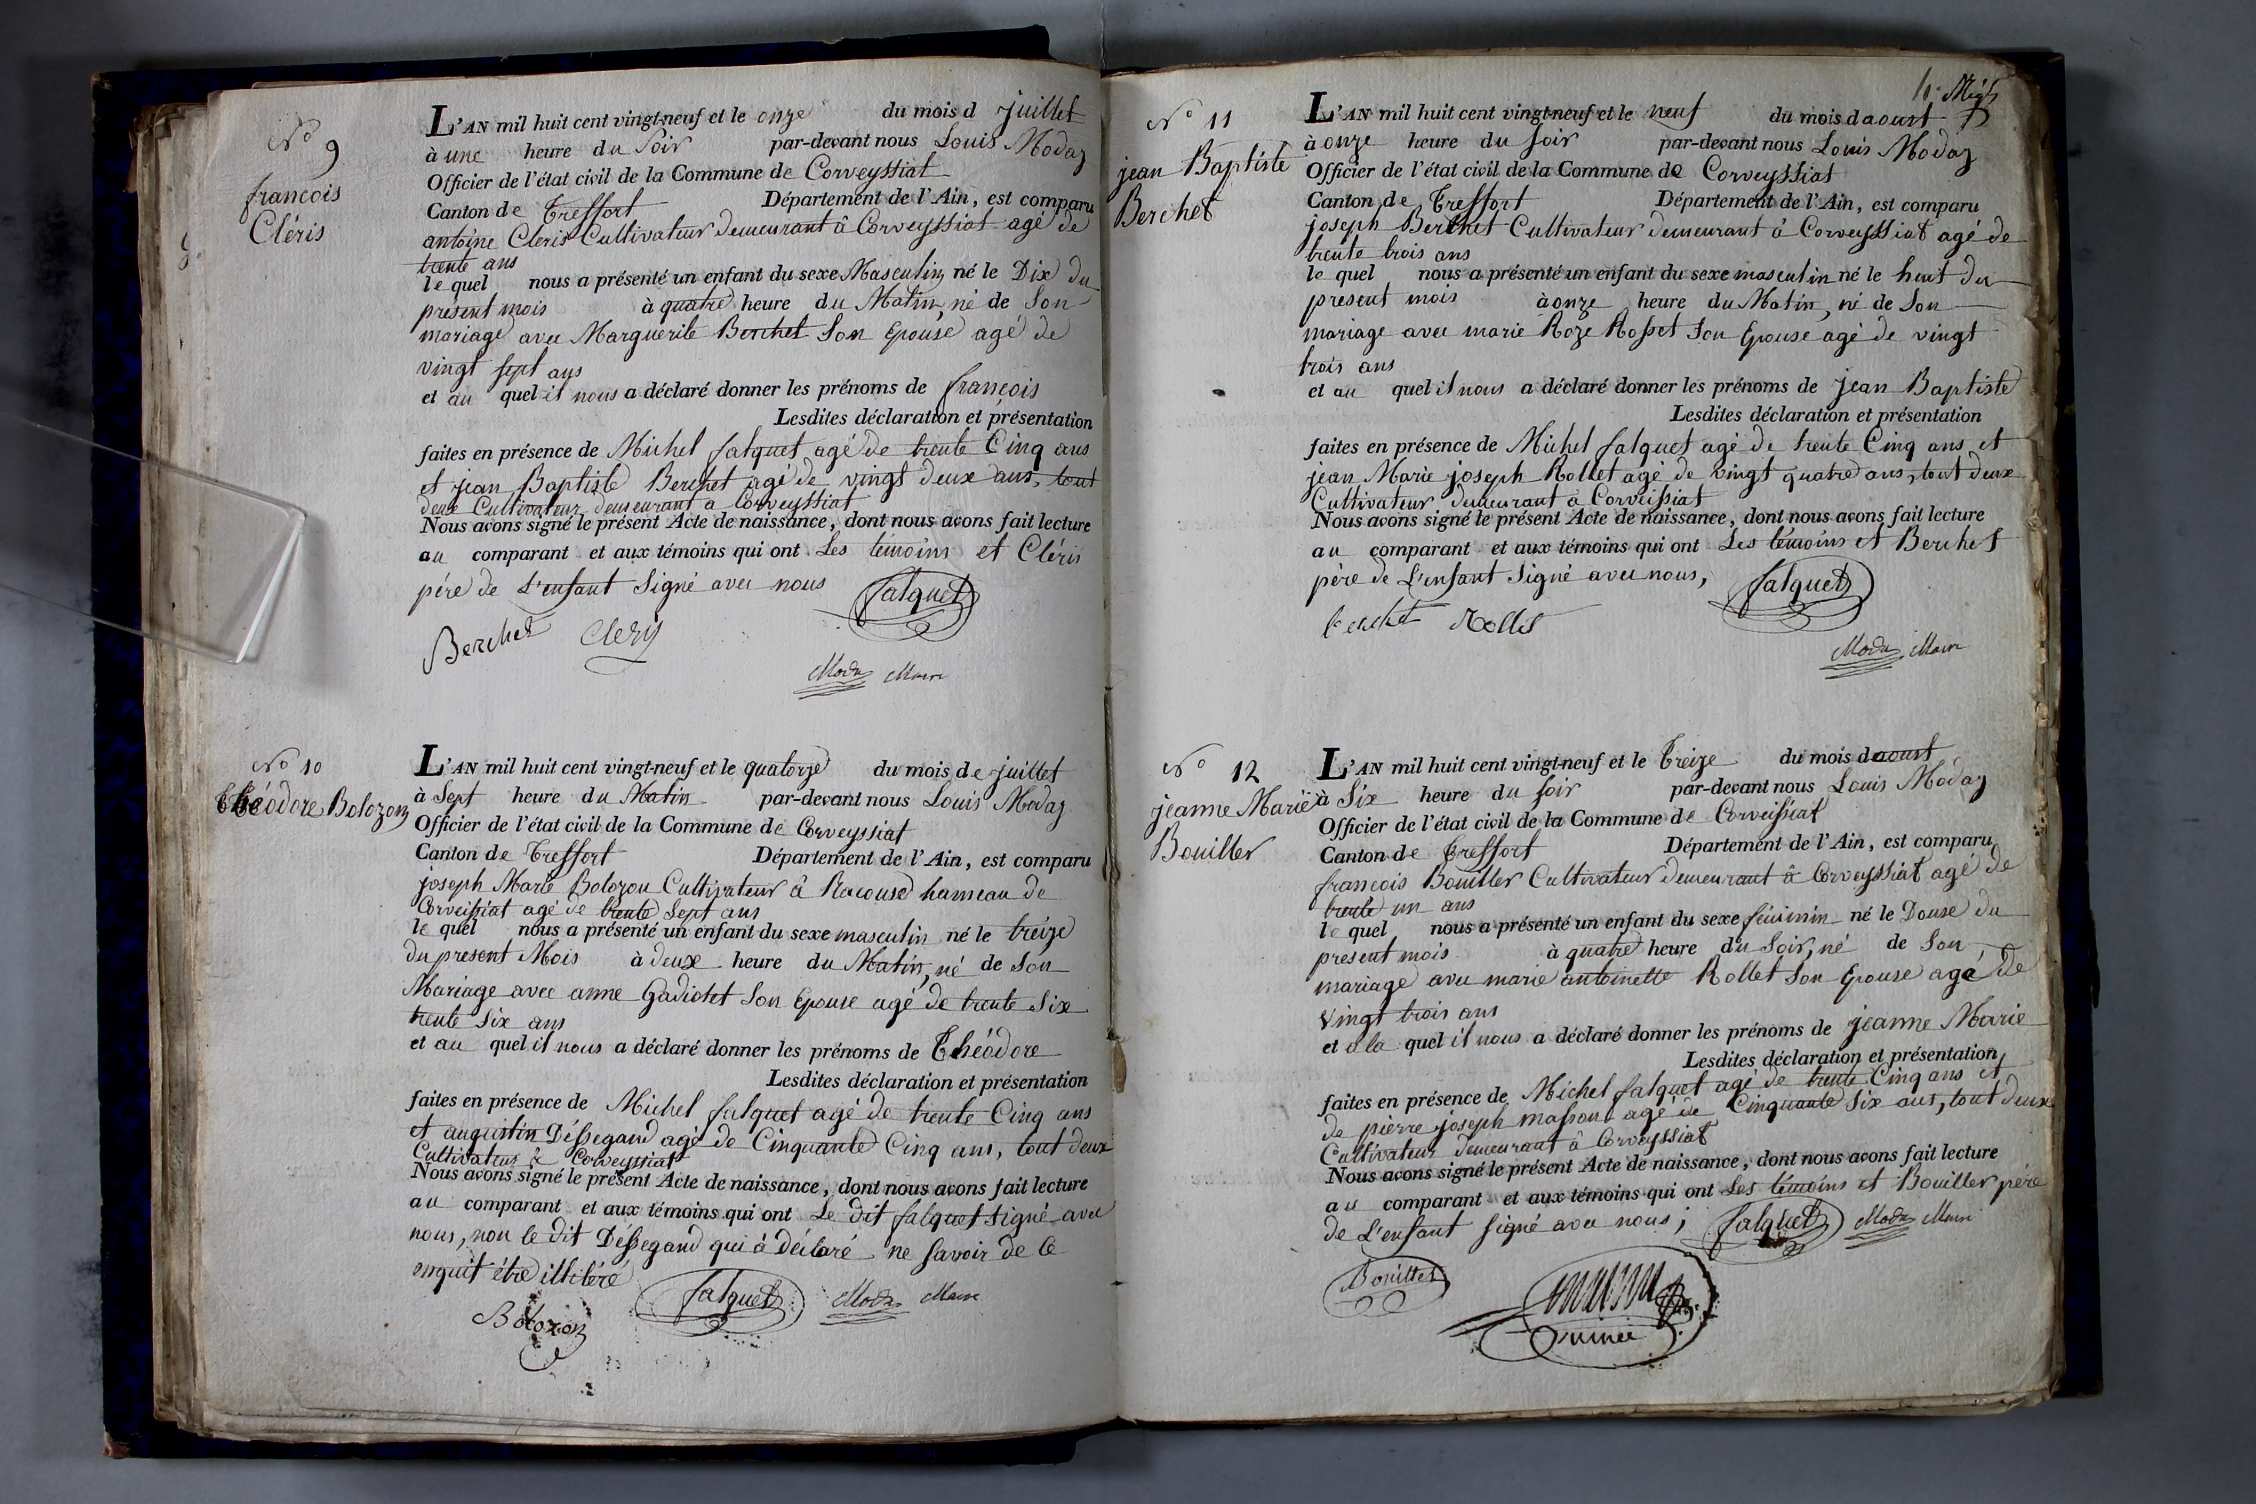 N° 9
francois
Cléris
L'AN mil huit cent vingt-neuf et le onze du mois d juillet
à une heure du Soir par-devant nous Louis Modaz
Officier de l'état civil de la Commune de Corveyssiat
Canton de Treffort Département de l'Ain, est comparu
antoine Cleris Cultivateur demeurant â Corveyssiat agé de
trente ans
le quel nous a présenté un enfant du sexe Masculin né le Dix du
présent mois à quatre heure du Matin, né de Son
mariage avec Marguerite Berchet Son Epouse agé de
vingt sept ans
et au quel il nous a déclaré donner les prénoms de francois
Lesdites déclaration et présentation
faites en présence de Michel falquet agé de trente Cinq ans
et jean Baptiste Berchet agé de vingt deux ans, tout
deux Cultivateur demeurant a Corveyssiat
Nous avons signé le présent Acte de naissance, dont nous avons fait lecture
au comparant et aux témoins qui ont Les témoins et Cléris
pére de L'enfant Signé avec nous
falquet
Berchet Clery
Modas Maire
N° 10
Théodore Bolozon
L'AN mil huit cent vingt-neuf et le quatorze du mois de juillet
à Sept heure du Matin par-devant nous Louis Modaz
Officier de l'état civil de la Commune de Corveyssiat
Canton de Treffort Département de l'Ain, est comparu
joseph Marie Bolozon Cultivateur â Racouse hameau de
Corveissiat agé de trente Sept ans
le quel nous a présenté un enfant du sexe masculin né le treize
du present Mois à deux heure du Matin, né de Son
Mariage avec anne Gadiolet Son Epouse agé de trente Six
trente Six ans
et au quel il nous a déclaré donner les prénoms de Théodore
Lesdites déclaration et présentation
faites en présence de Michel falquet agé de trente Cinq ans
et augustin Déssegaud agé de Cinquante Cinq ans, tout deux
Cultivateur à Corveyssiat
Nous avons signé le présent Acte de naissance, dont nous avons fait lecture
au comparant et aux témoins qui ont Le dit falquet signé avec
nous, non le dit Déssegaud qui à déclaré ne savoir de ce
enquit étre illitéré
falquet Modas Maire
Bolozon
N° 11
jean Baptiste
Berchet
L'AN mil huit cent vingt-neuf et le neuf du mois d aoust
à onze heure du soir par-devant nous Louis Modaz
Officier de l'état civil de la Commune de Corveyssiat
Canton de Treffort Département de l'Ain, est comparu
joseph Berchet Cultivateur demeurant â Corveyssiat agé de
trente trois ans
le quel nous a présenté un enfant du sexe masculin né le huit du
present mois à onze heure du Matin, né de Son
mariage avec marie Roze Rosset Son Epouse agé de vingt
trois ans
et au quel il nous a déclaré donner les prénoms de jean Baptiste
Lesdites déclaration et présentation
faites en présence de Michel falquet agé de trente Cinq ans et
jean Marie joseph Rollet agé de vingt quatre ans, tout deux
Cultivateur demeurant à Corveissiat
Nous avons signé le présent Acte de naissance, dont nous avons fait lecture
au comparant et aux témoins qui ont Les témoins et Berchet
pére de L'enfant Signé avec nous,
falquet
berchet Rollet
Modas Maire
N° 12
jeanne Marie
Bouiller
L'AN mil huit cent vingt-neuf et le Treize du mois d aoust
à Six heure du soir par-devant nous Louis Modaz
Officier de l'état civil de la Commune de Corveissiat
Canton de Treffort Département de l'Ain, est comparu
francois Bouiller Cultivateur demeurant â Corveyssiat agé de
trente un ans
le quel nous a présenté un enfant du sexe féminin né le Douse du
present mois à quatre heure du Soir, né de Son
mariage avec marie antoinette Rollet Son Epouse agé de
vingt trois ans
et a la quel il nous a déclaré donner les prénoms de jeanne Marie
Lesdites déclaration et présentation
faites en présence de Michel falquet agé de trente Cinq ans et
de pierre joseph masson agé de Cinquante Six ans, tout deux
Cultivateur demeurant â Corveyssiat
Nous avons signé le présent Acte de naissance, dont nous avons fait lecture
au comparant et aux témoins qui ont Les témoins et Bouiller pére
de L'enfant signé avec nous;
falquet Modas Maire
Bouiller